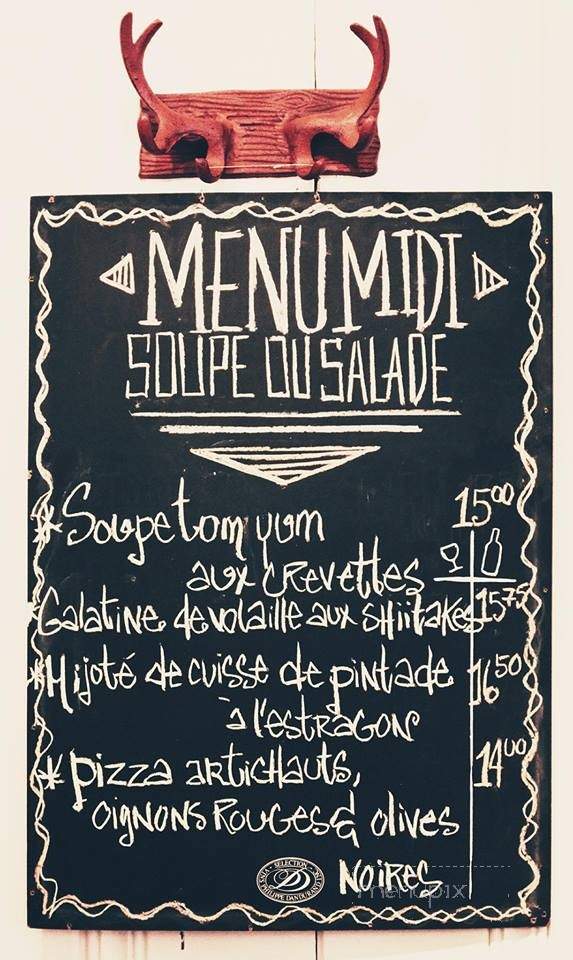 MENU MIDI
SOUPE OU SALADE
* Soupe tom yum 15⁰⁰
aux crevettes
Galatine de volaille aux shiitakes 15⁷⁵
* Mijoté de cuisse de pintade 16⁵⁰
à l'estragon
* Pizza artichauts, 14⁰⁰
oignons rouges & olives
noires
SELECTION
D
VINS PHILIPPE DANDURAND INC.
menupix